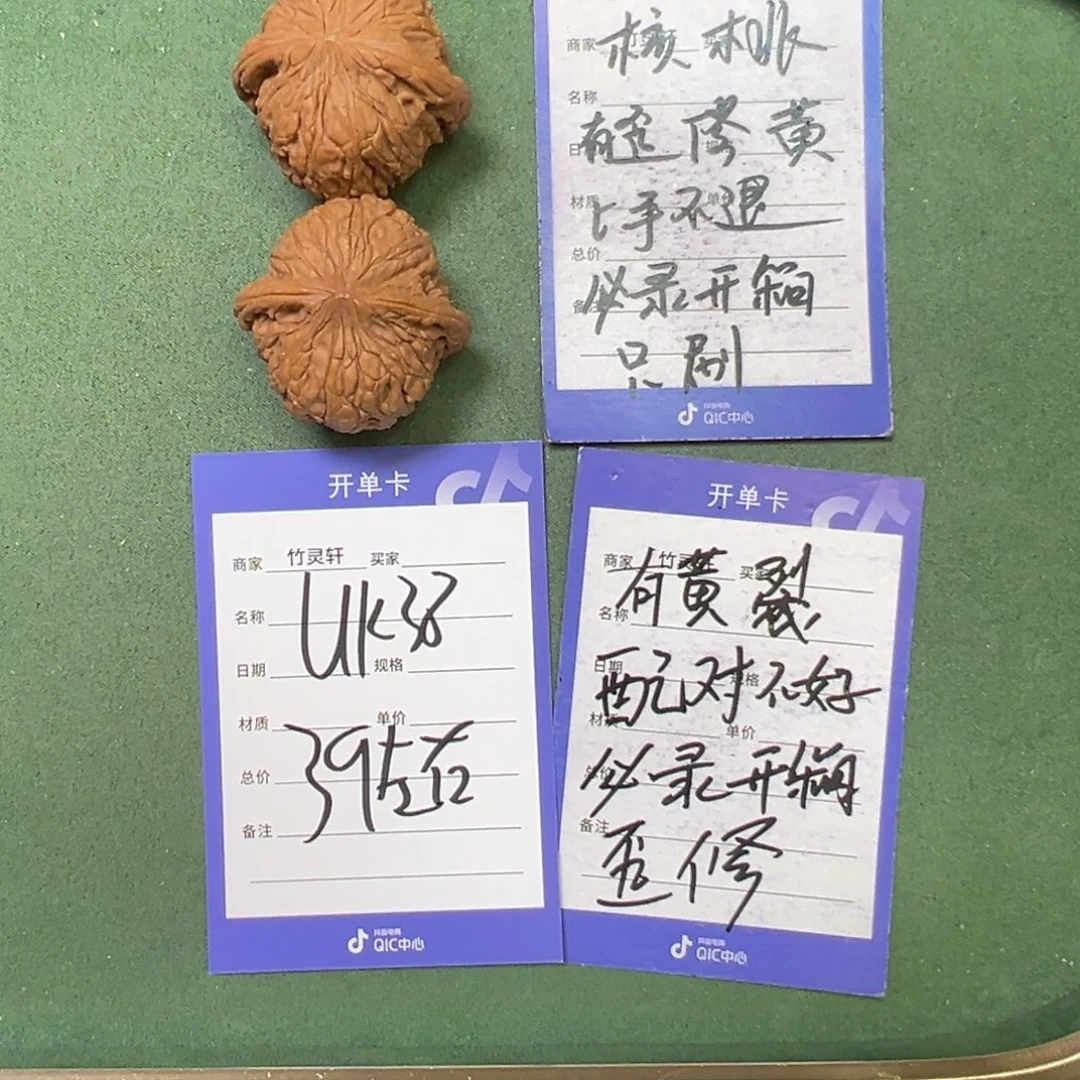 商家
核桃
名称
有歪修黄
日期
材质 单价
上手不退
总价
必录开箱
备注
只刷
抖音电商
QIC中心
开单卡
商家 竹灵轩 买家
UK38
名称
日期 规格
材质 单价
39左右
总价
备注
抖音电商
QIC中心
开单卡
商家 竹灵轩 买家
有黄裂
名称
日期 规格
配对不好
材质 单价
必录开箱
总价
备注
歪修
抖音电商
QIC中心